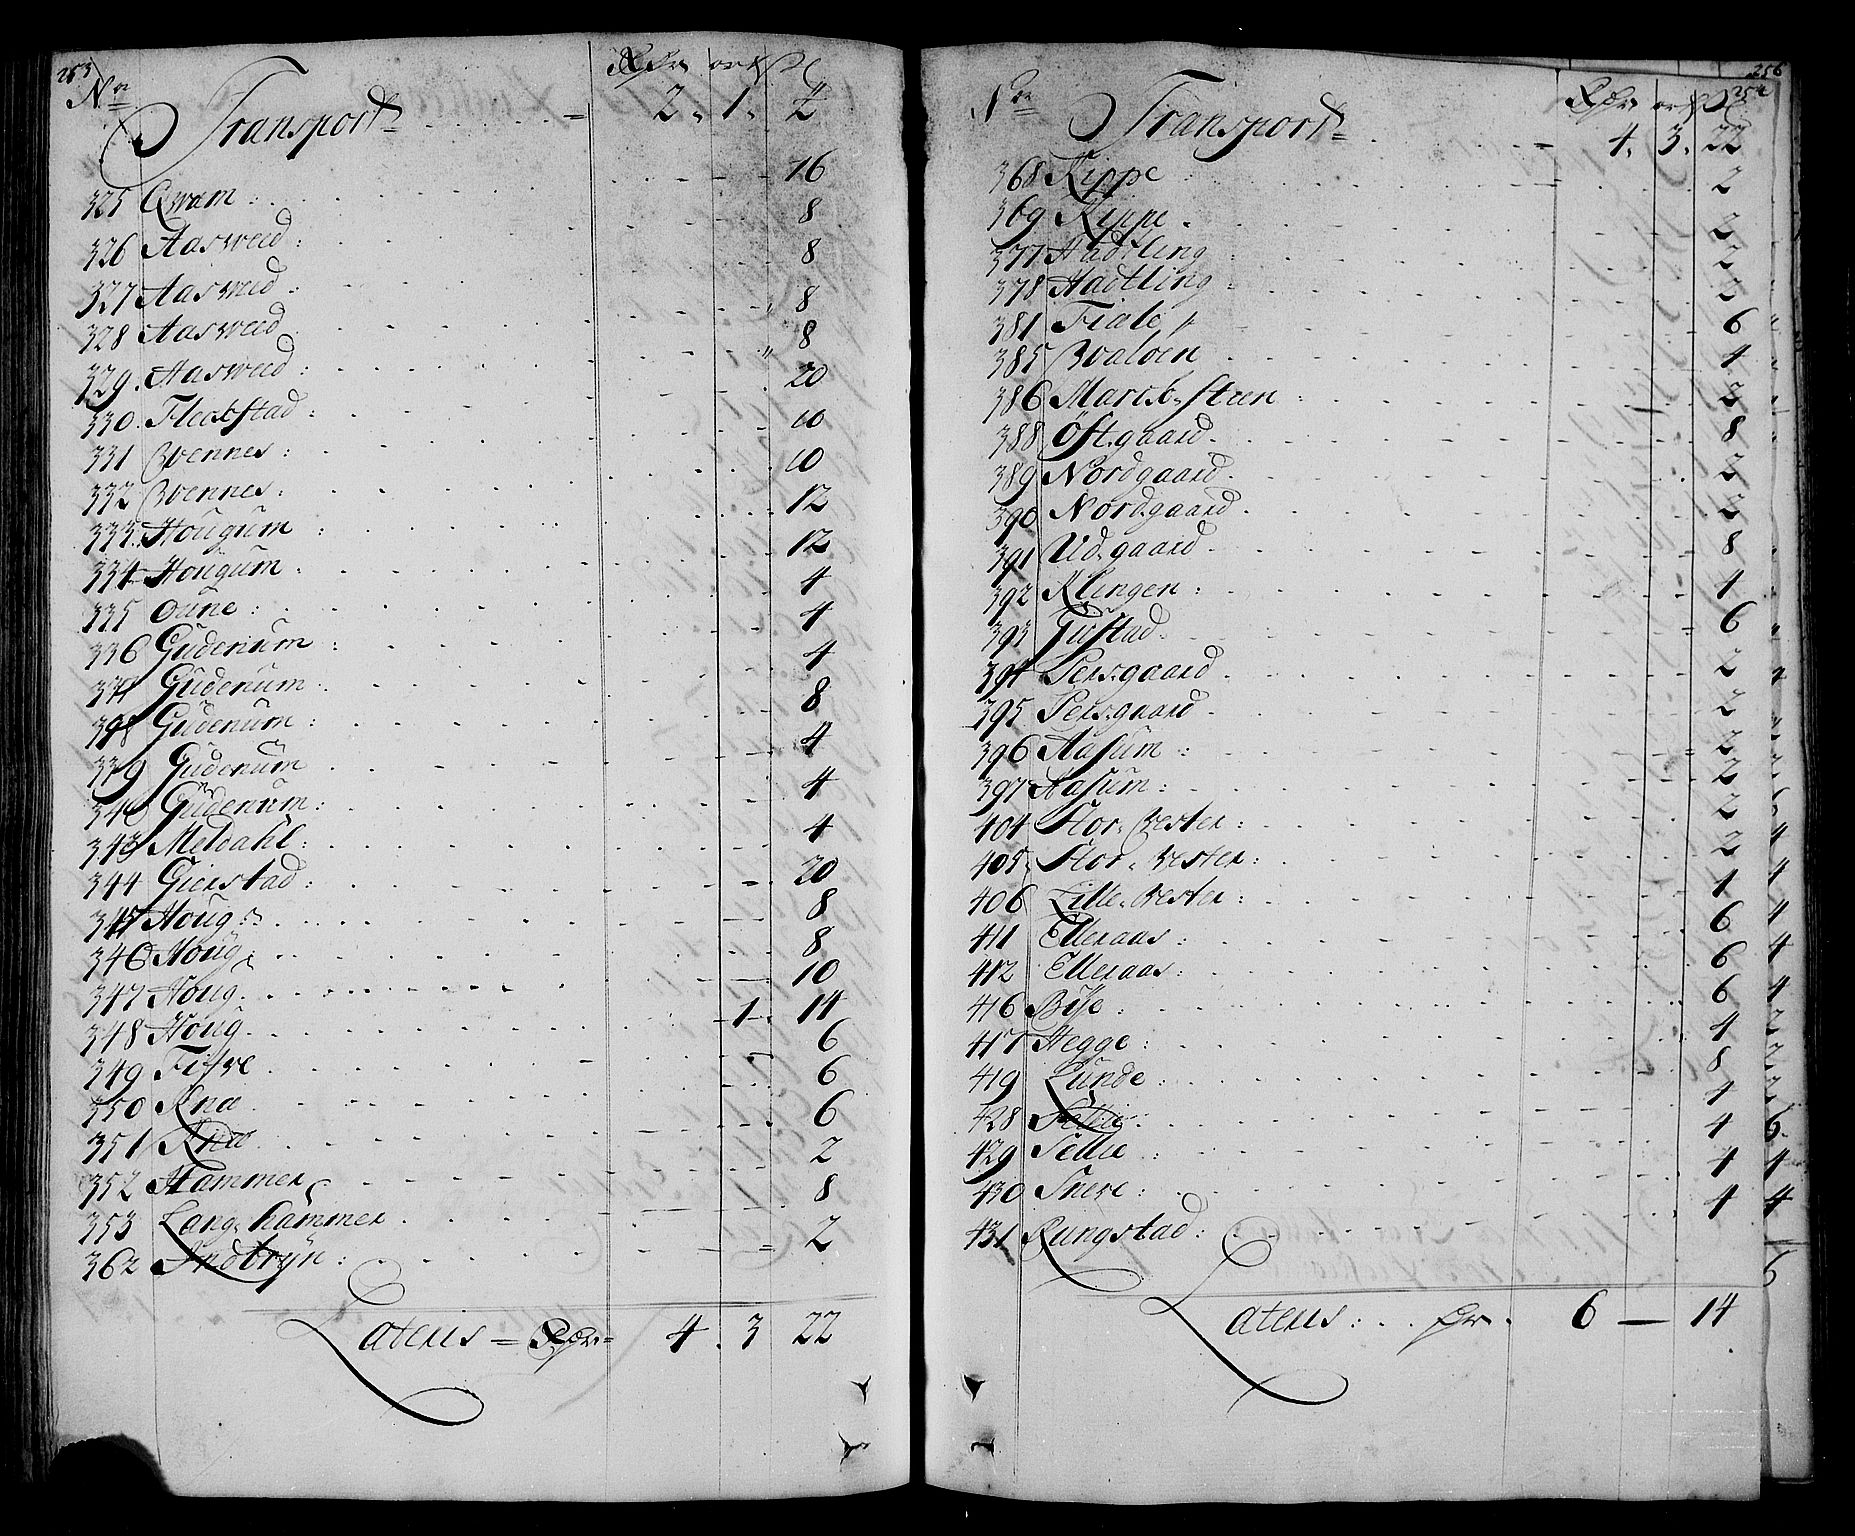 253
No Rdr ort ß
Transport 2. 1. 4
325 Qvam 16
326 Aasweed 8
327 Aasweed 8
328 Aasweed 8
329 Aasweed 8
330 Fleckstad 20
331 Svennes 10
332 Svennes 10
333 Hougum 12
334 Hougum 12
335 Oune 4
336 Gudenum 4
337 Gudenum 4
338 Gudenum 8
339 Gudenum 4
340 Gudenum 4
343 Meldahl 4
344 Gierstad 20
345 Houg 8
346 Houg 8
347 Houg 10
348 Houg 1 14
349 Fiske 6
350 Kna 6
351 Kna 6
352 Hammer 2
353 Lang hammer 8
362 Indbryn 2
Latus Rdr 4. 3 22
256
254
No Rdr ort ß
Transport 4. 3. 22
368 Kippe 2
369 Kippe 2
377 Hadtling 2
378 Hadtling 2
381 Fiale 6
385 Svalöen 4
386 Marck Steen 2
388 Östgaard 8
389 Nordgaard 2
390 Nordgaard 2
391 Udgaard 8
392 Klingen 4
393 Gistad 6
394 Persgaard 2
395 Persgaard 2
396 Aasum 2
397 Aasum 2
404 Stor Sester 2
405 Stor Sester 2
406 Lille Sester 4
411 Elleraas 6
412 Elleraas 6
416 Böse 6
417 Hegge 4
419 Lunde 8
428 Sellie 4
429 Sellie 4
430 Snere 4
431 Rungstad 4
Latus Rdr 6 — 14